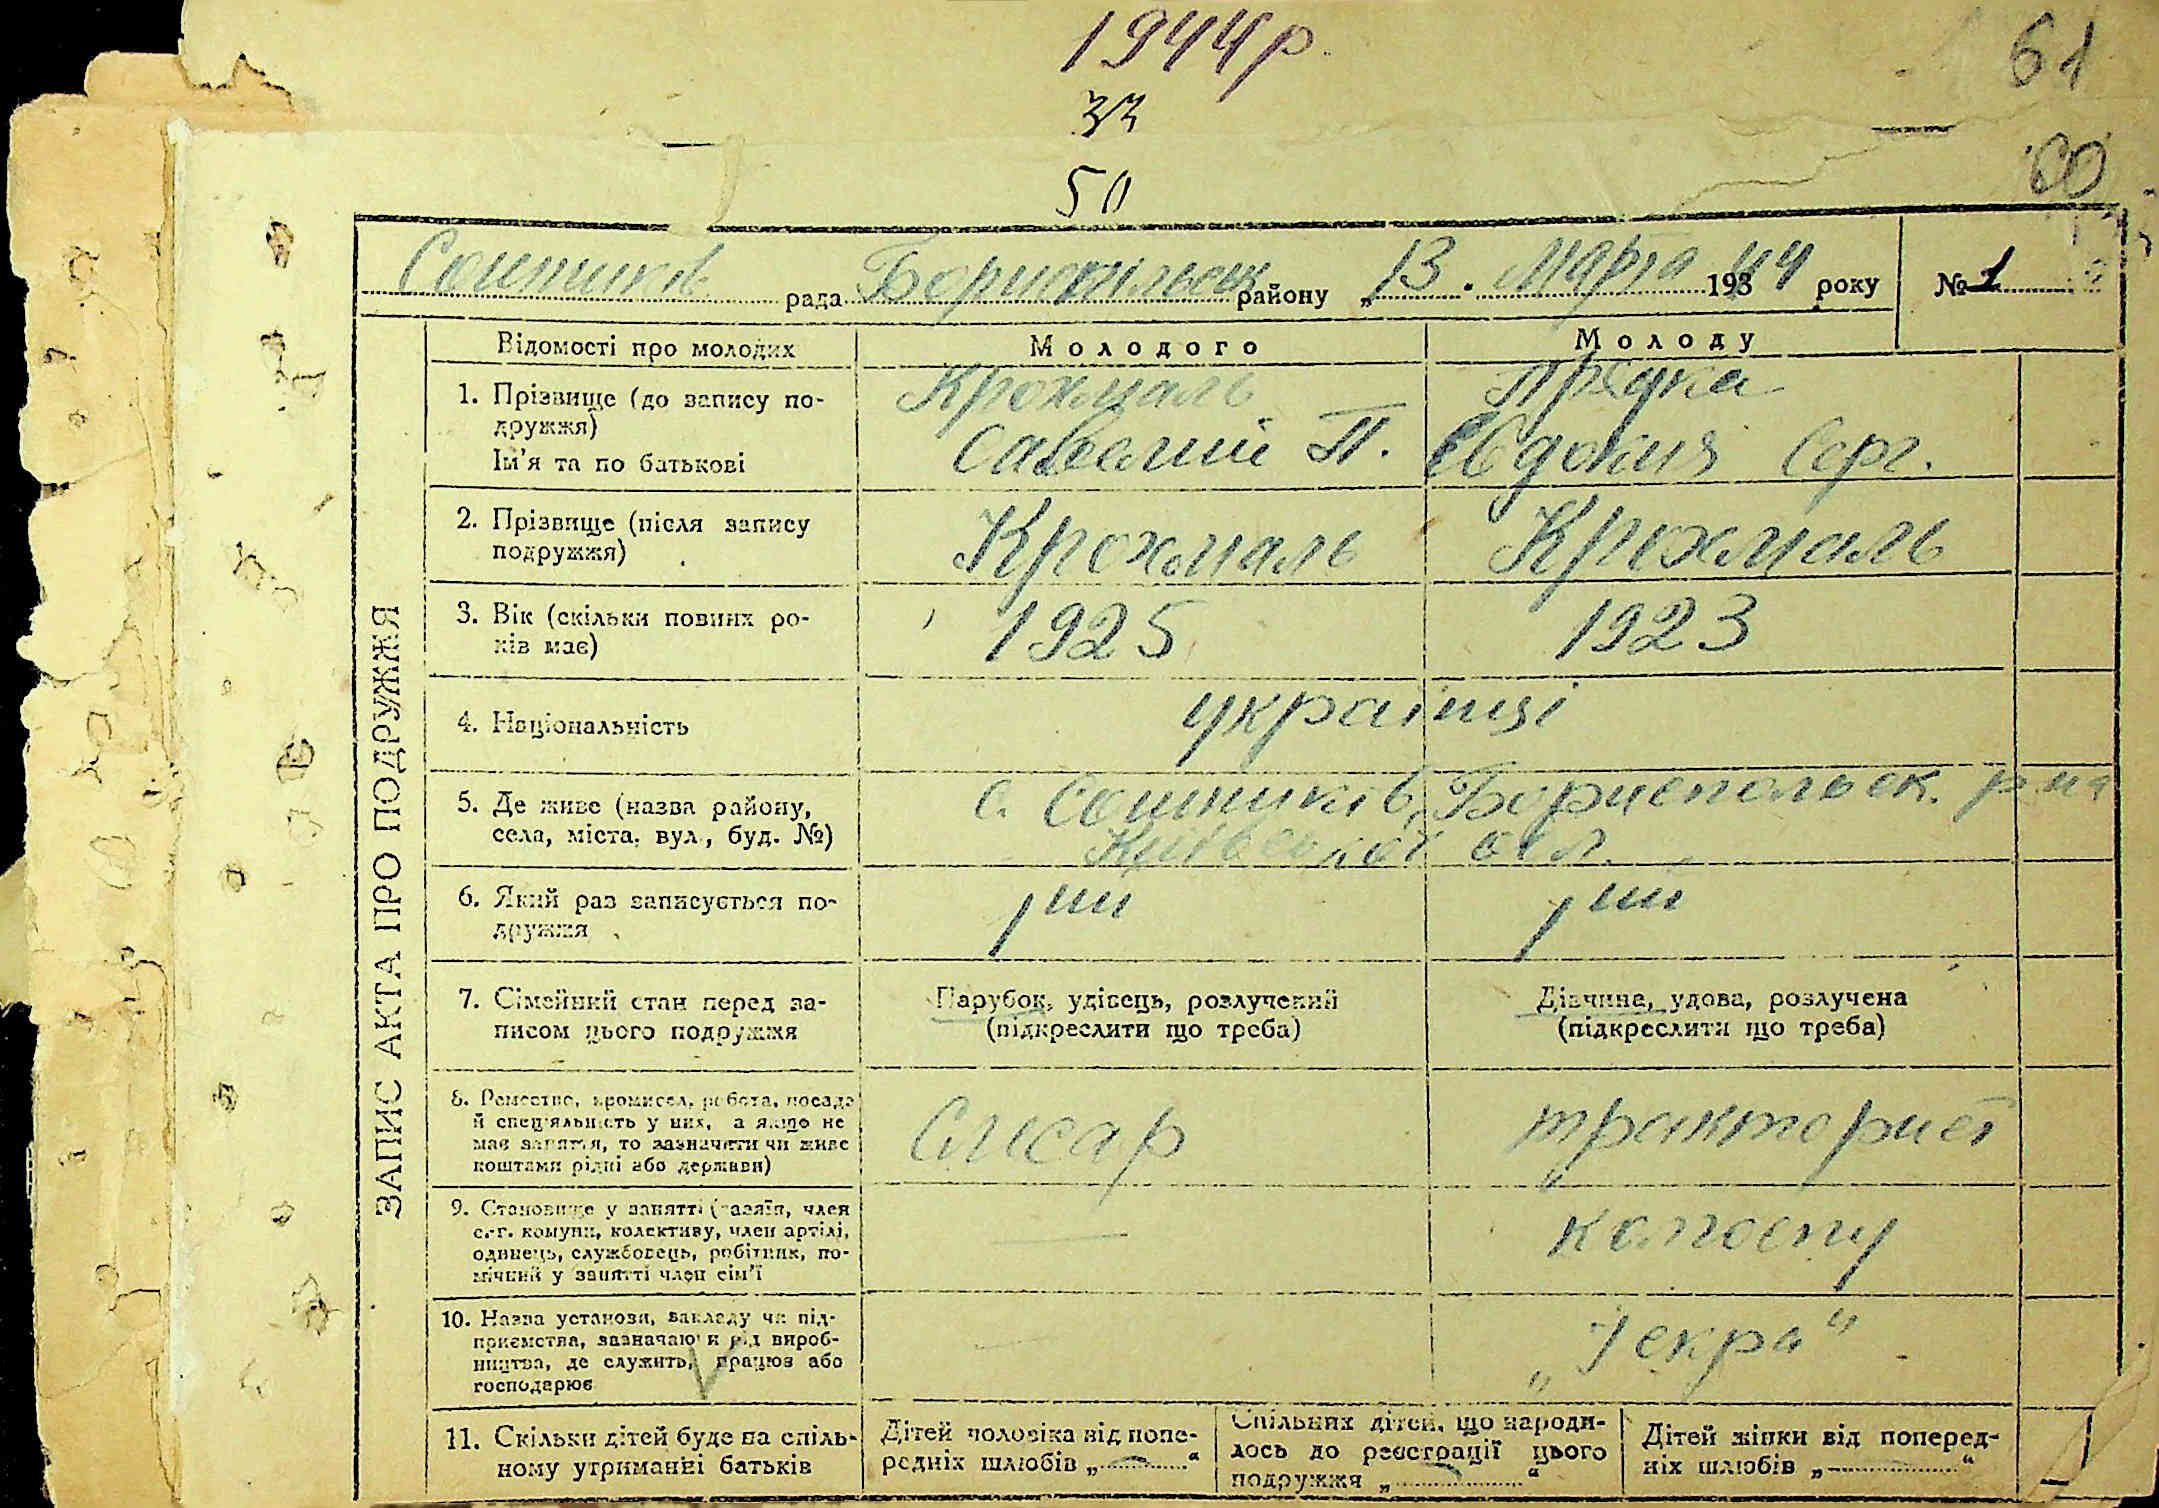 1944р.
33
50
61
60
Сошників рада Бориспільськ району „13. Марта 1944 року №1
ЗАПИС АКТА ПРО ПОДРУЖЖЯ
Відомості про молодих Молодого Молоду
1. Прізвище (до запису по- Крохмаль
дружжя)
Ім'я та по батькові Савелий П. Евдокия Серг.
2. Прізвище (після запису Крохмаль Крохмаль
подружжя)
3. Вік (скільки повних ро- 1925 1923
ків має)
4. Національність українці
5. Де живе (назва району, с. Сошників, Бориспольск. р-на
села, міста, вул., буд. №) Київської обл.
6. Який раз записується по- 1ий 1ий
дружжя
7. Сімейний стан перед за- Парубок, удівець, розлучений Дівчина, удова, розлучена
писом цього подружжя (підкреслити що треба) (підкреслити що треба)
8. Ремество, промисел, робота, посада
й спеціяльність у них, а якщо не Слюсар тракторист
має заняття, то зазначити чи живе
коштами рідні або держави)
9. Становище у занятті (хазяїн, член
с.-г. комуни, колективу, член артілі, — колгоспу
одинець, службовець, робітник, по-
мічний у занятті член сім'ї
10. Назва установи, закладу чи під- „Іскра"
приємства, зазначаючи рід вироб-
ництва, де служить, працює або
господарює
11. Скільки дітей буде на спіль-
ному утриманні батьків
Дітей чоловіка від попе-
редніх шлюбів „—"
Спільних дітей, що народи-
лось до реєстрації цього
подружжя „—"
Дітей жінки від поперед-
ніх шлюбів „—"